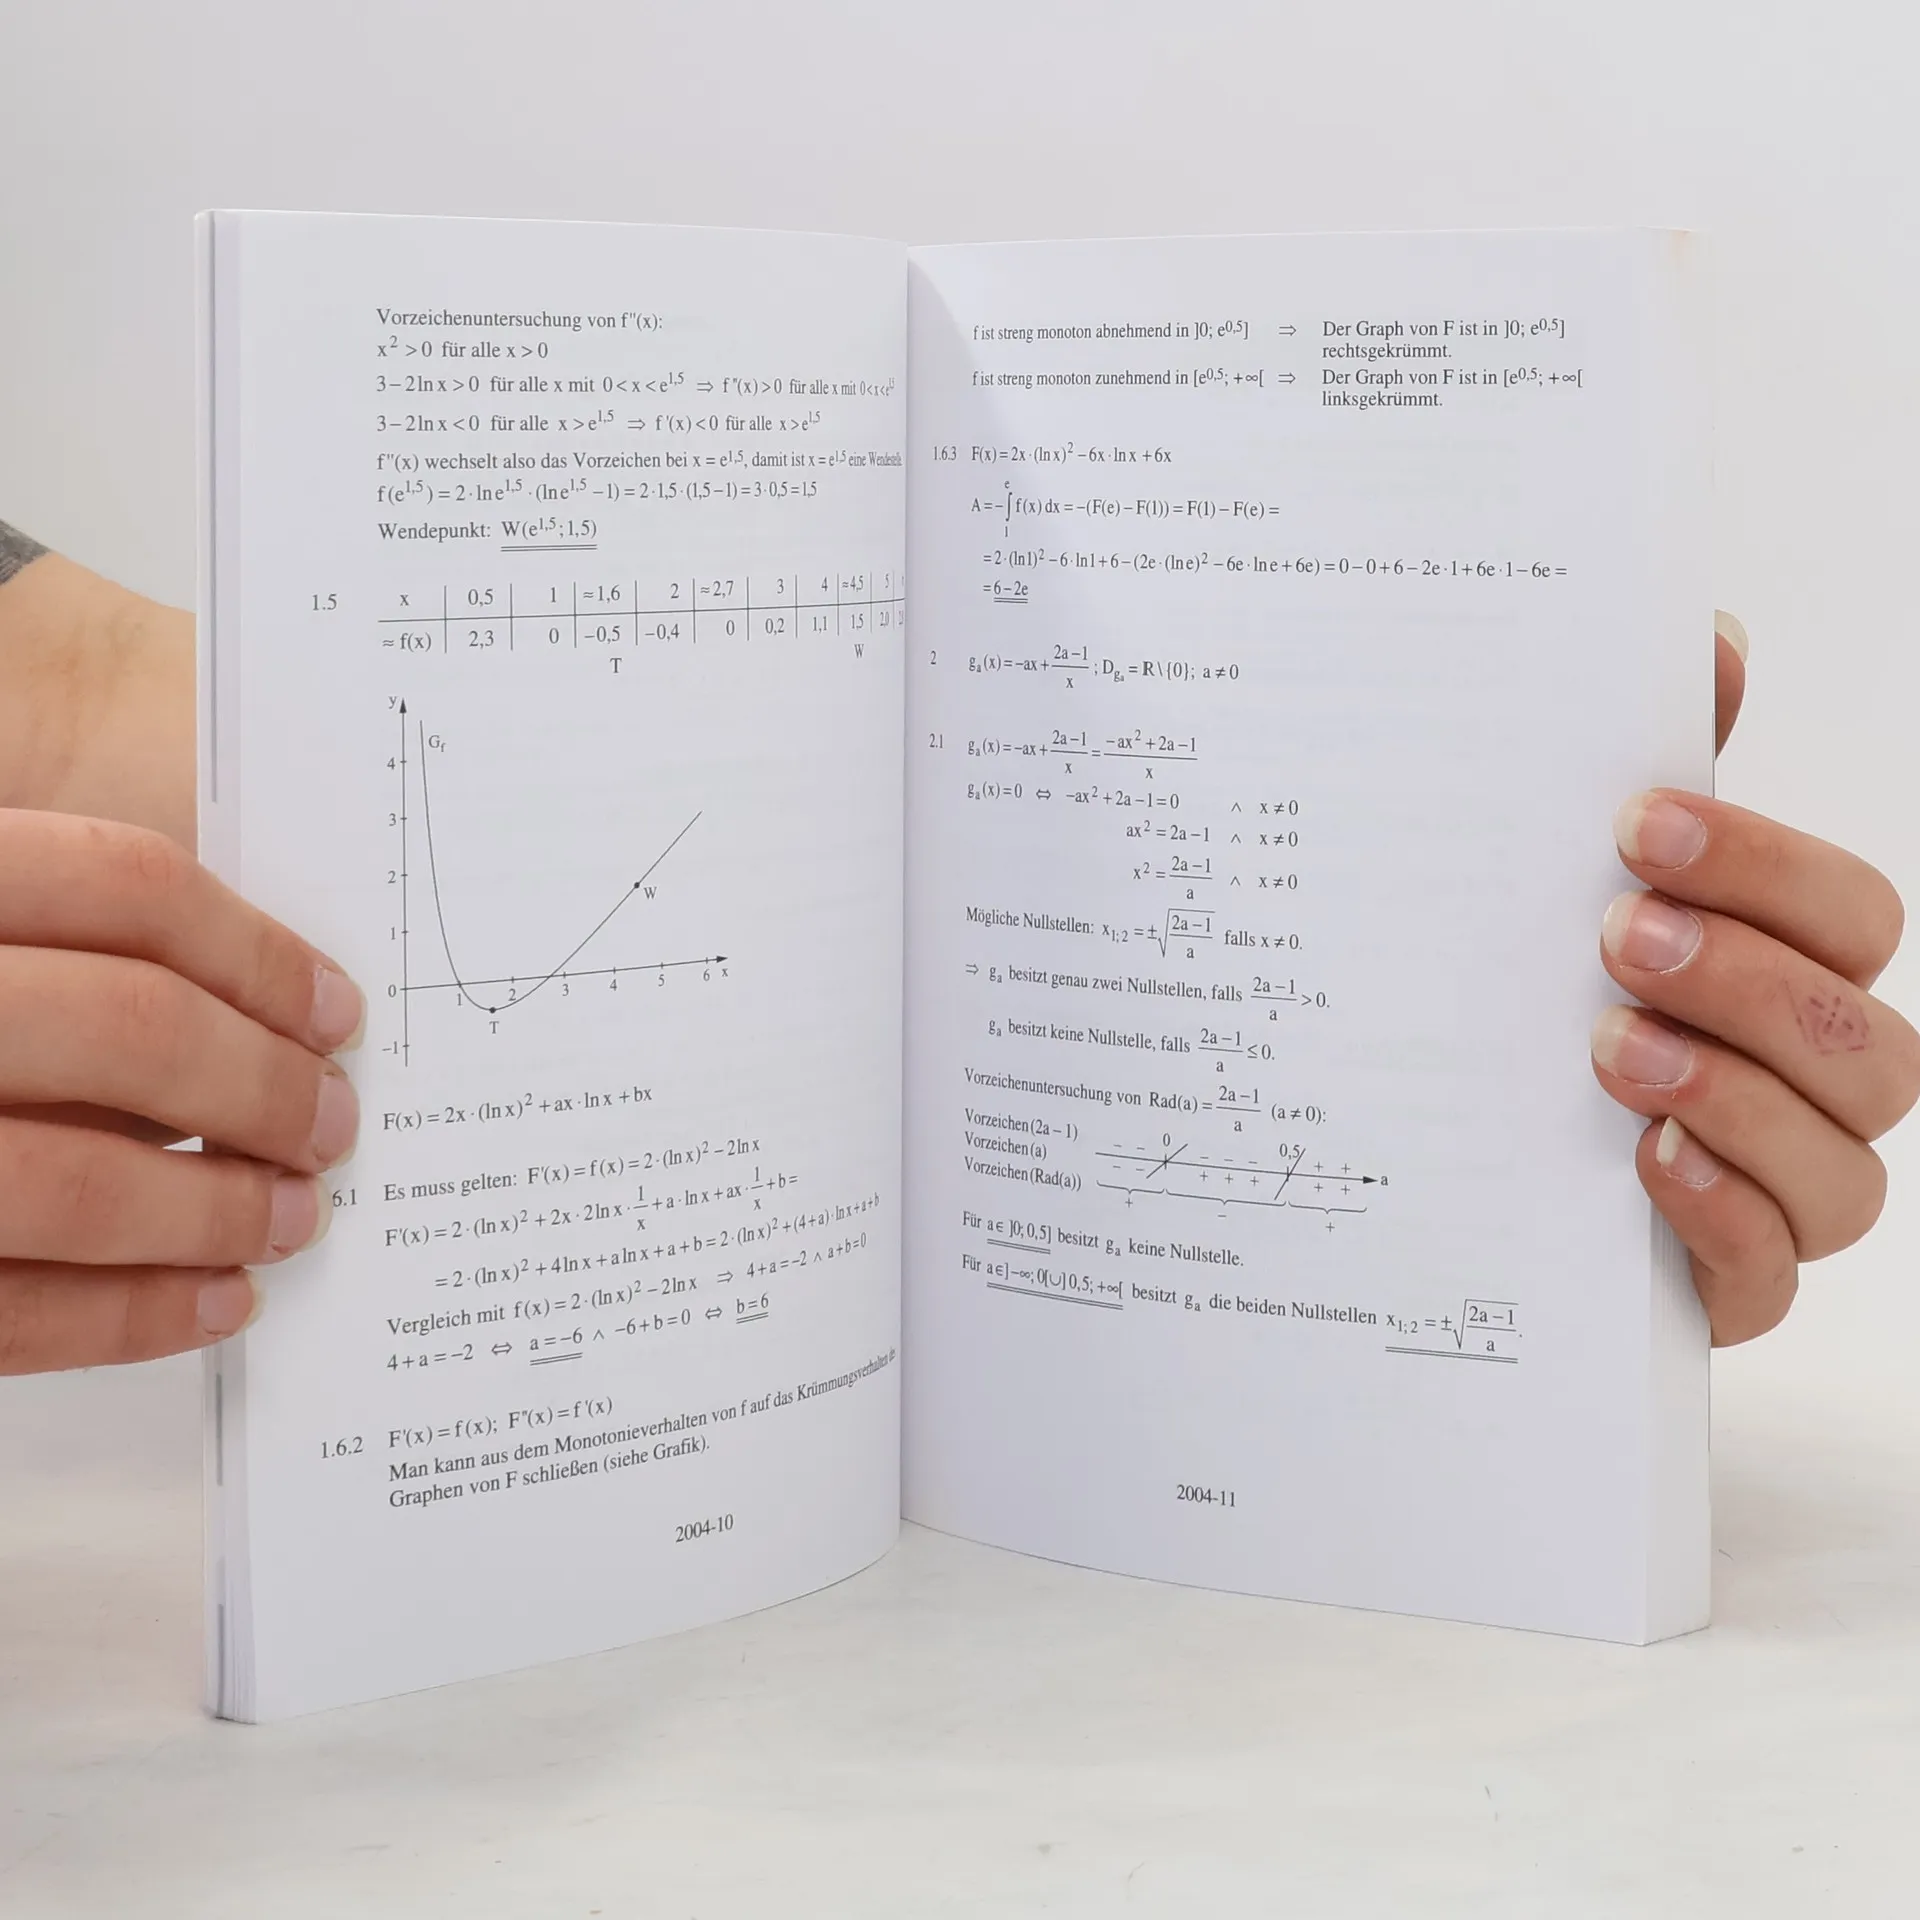 Vorzeichenuntersuchung von f"(x):
x² > 0 für alle x > 0
3 – 2 ln x > 0 für alle x mit 0 < x < e^1,5 ⇒ f"(x) > 0 für alle x mit 0 < x < e^1,5
3 – 2 ln x < 0 für alle x > e^1,5 ⇒ f'(x) < 0 für alle x > e^1,5
f"(x) wechselt also das Vorzeichen bei x = e^1,5, damit ist x = e^1,5 eine Wendestelle
f(e^1,5) = 2 · ln e^1,5 · (ln e^1,5 – 1) = 2 · 1,5 · (1,5 – 1) = 3 · 0,5 = 1,5
Wendepunkt: W(e^1,5; 1,5)
1.5 x 0,5 1 ≈1,6 2 ≈2,7 3 4 ≈4,5 5
≈ f(x) 2,3 0 –0,5 –0,4 0 0,2 1,1 1,5 2,0
T W
y
G_f
4
3
2
W
1
0 1 2 3 4 5 6 x
T
–1
F(x) = 2x · (ln x)² + ax · ln x + bx
6.1 Es muss gelten: F'(x) = f(x) = 2 · (ln x)² – 2 ln x
F'(x) = 2 · (ln x)² + 2x · 2 ln x · 1/x + a · ln x + ax · 1/x + b =
= 2 · (ln x)² + 4 ln x + a ln x + a + b = 2 · (ln x)² + (4 + a) · ln x + a + b
Vergleich mit f(x) = 2 · (ln x)² – 2 ln x ⇒ 4 + a = –2 ∧ a + b = 0
4 + a = –2 ⇔ a = –6 ∧ –6 + b = 0 ⇔ b = 6
1.6.2 F'(x) = f(x); F"(x) = f'(x)
Man kann aus dem Monotonieverhalten von f auf das Krümmungsverhalten des
Graphen von F schließen (siehe Grafik).
2004-10
f ist streng monoton abnehmend in ]0; e^0,5] ⇒ Der Graph von F ist in ]0; e^0,5]
rechtsgekrümmt.
f ist streng monoton zunehmend in [e^0,5; +∞[ ⇒ Der Graph von F ist in [e^0,5; +∞[
linksgekrümmt.
1.6.3 F(x) = 2x · (ln x)² – 6x · ln x + 6x
A = –∫₁^e f(x) dx = –(F(e) – F(1)) = F(1) – F(e) =
= 2 · (ln 1)² – 6 · ln 1 + 6 – (2e · (ln e)² – 6e · ln e + 6e) = 0 – 0 + 6 – 2e · 1 + 6e · 1 – 6e =
= 6 – 2e
2 g_a(x) = –ax + (2a – 1)/x ; D_g_a = ℝ \ {0}; a ≠ 0
2.1 g_a(x) = –ax + (2a – 1)/x = (–ax² + 2a – 1)/x
g_a(x) = 0 ⇔ –ax² + 2a – 1 = 0 ∧ x ≠ 0
ax² = 2a – 1 ∧ x ≠ 0
x² = (2a – 1)/a ∧ x ≠ 0
Mögliche Nullstellen: x_1;2 = ±√((2a – 1)/a) falls x ≠ 0.
⇒ g_a besitzt genau zwei Nullstellen, falls (2a – 1)/a > 0.
g_a besitzt keine Nullstelle, falls (2a – 1)/a ≤ 0.
Vorzeichenuntersuchung von Rad(a) = (2a – 1)/a (a ≠ 0):
Vorzeichen (2a – 1) – – 0 – – – 0,5 + +
Vorzeichen (a) – – + + + + + a
Vorzeichen (Rad(a)) + – +
Für a ∈ ]0; 0,5] besitzt g_a keine Nullstelle.
Für a ∈ ]–∞; 0[ ∪ ]0,5; +∞[ besitzt g_a die beiden Nullstellen x_1;2 = ±√((2a – 1)/a).
2004-11